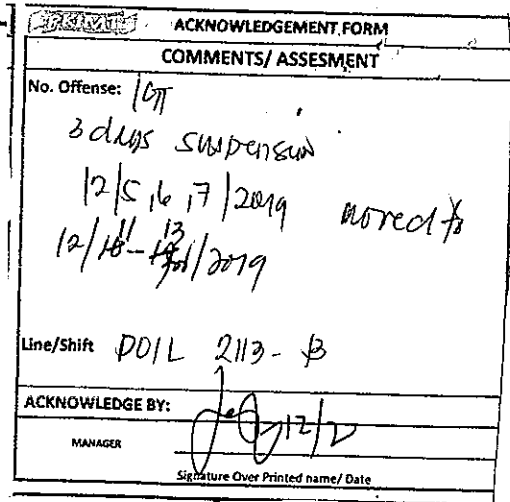 ACKNOWLEDGEMENT FORM
COMMENTS/ ASSESMENT
No. Offense: 1st
3 days suspension
12/5,6,7/2019 moved to
12/11-13/2019
Line/Shift DO1L 2113-B
ACKNOWLEDGE BY:
12/2
MANAGER
Signature Over Printed name/ Date